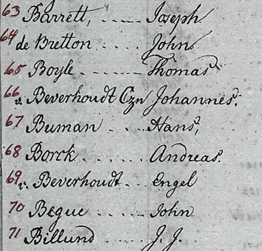 63 Barrett, ..... Joseph
64 de Bretton ..... John
65 Boyle ------- Thomas
66 v. Beverhoudt Czn Johannes.
67 Buman .... Hans,
68 Borck ..... Andreas.
69 v. Beverhoudt ... Engel
70 Beque ..... John
71 Billund .... J. J.